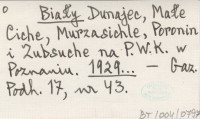 Biały Dunajec, Małe
Ciche, Murzasichle, Poronin
i Zubsuche na P.W.K. w
Poznaniu. 1929... — Gaz.
Podh. 17, nr 43.
BT/004/0797